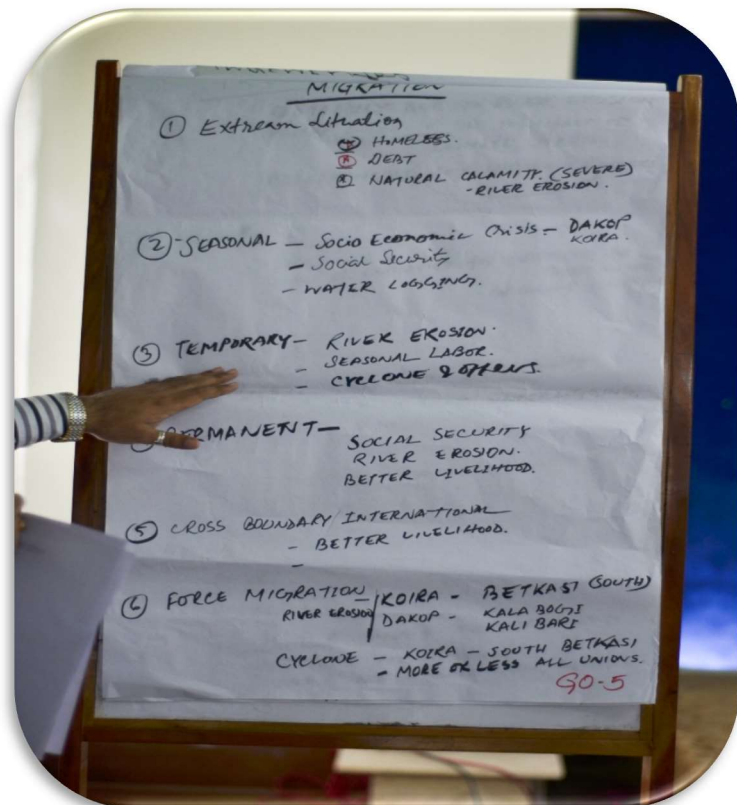 MIGRATION
① Extream Situation
HOMELESS.
DEBT
NATURAL CALAMITY. (SEVERE)
- RIVER EROSION.
② SEASONAL — Socio Economic Crisis — DAKOP
KOIRA.
- Social Security
- WATER LOGGING.
③ TEMPORARY — RIVER EROSION.
- SEASONAL LABOR.
- CYCLONE & OTHERS.
PERMANENT — SOCIAL SECURITY
RIVER EROSION.
BETTER LIVELIHOOD.
⑤ CROSS BOUNDARY/INTERNATIONAL
- BETTER LIVELIHOOD.
-
⑥ FORCE MIGRATION / KOIRA - BETKASI (SOUTH)
RIVER EROSION / DAKOP - KALA BOGI
KALI BARI
CYCLONE — KOIRA — SOUTH BETKASI
- MORE OR LESS ALL UNIONS.
GO-5